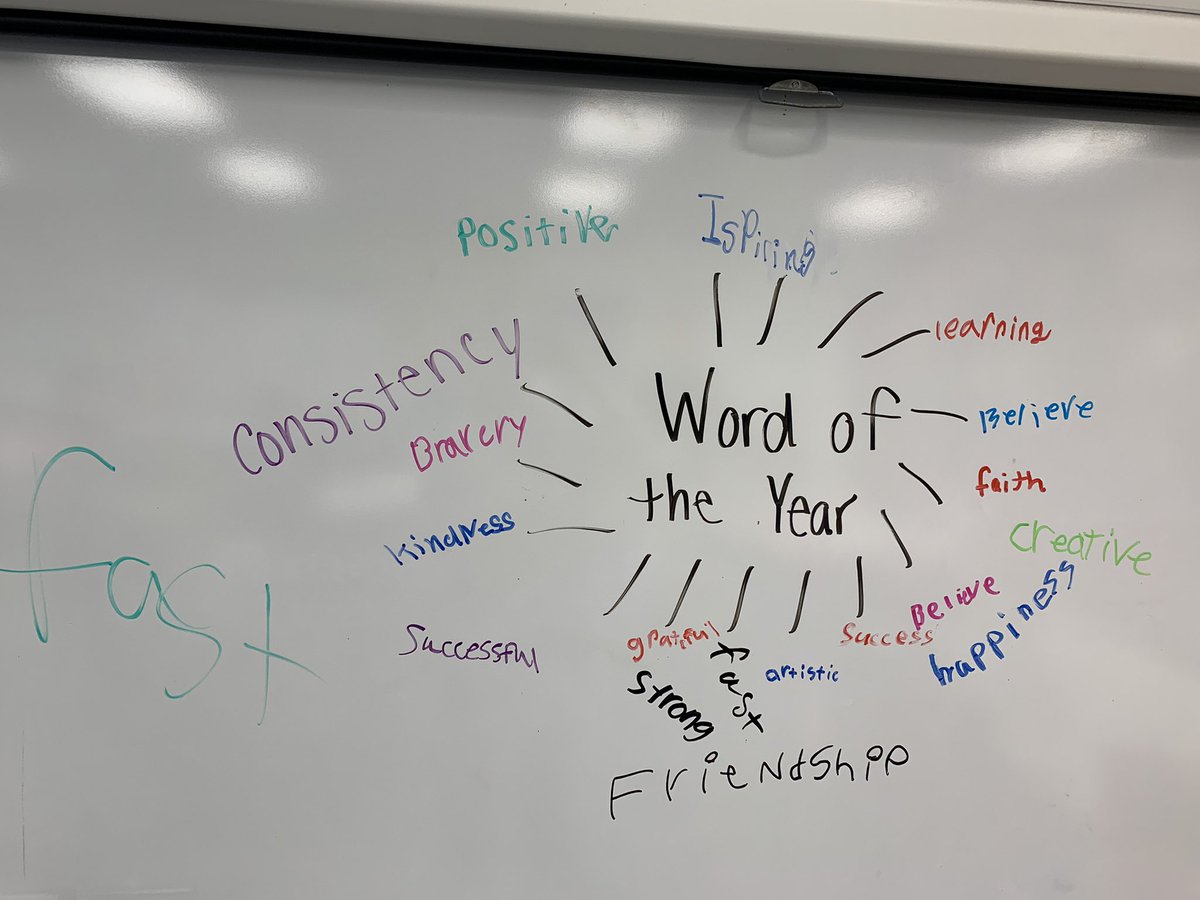 Positive
IsPiring
learning
Consistency
Word of
Believe
Bravery
the Year
faith
kindness
Creative
fast
Believe
happiness
Successful
gratefull
Success
strong
fast
artistic
Friendship